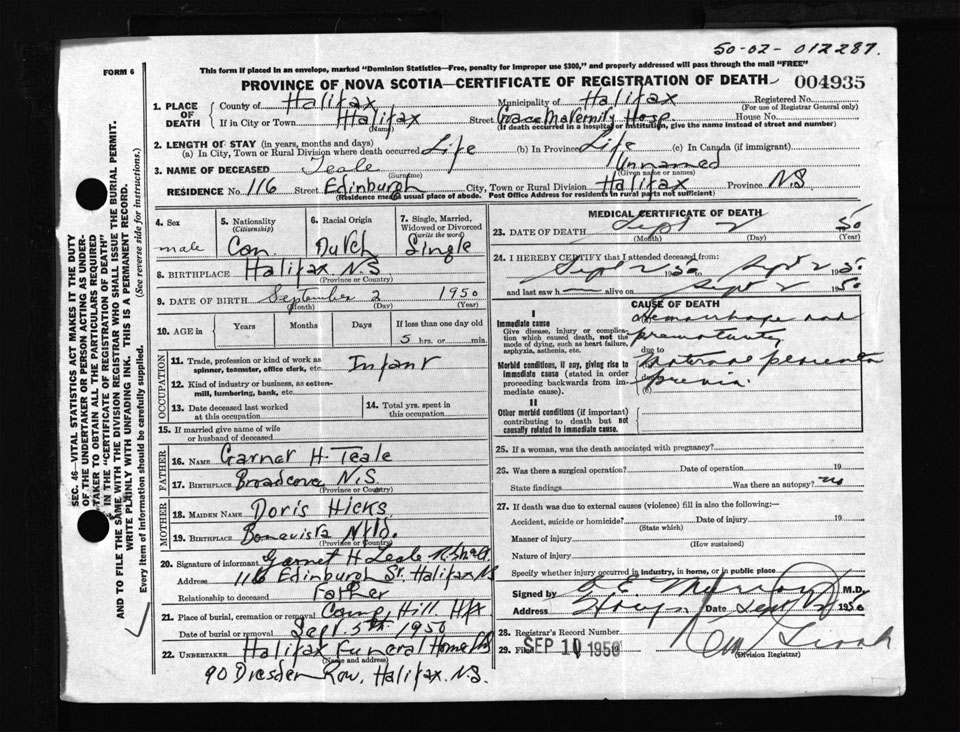 50-02-012287.
FORM 6
This form if placed in an envelope, marked "Dominion Statistics—Free, penalty for improper use $300," and properly addressed will pass through the mail "FREE"
PROVINCE OF NOVA SCOTIA—CERTIFICATE OF REGISTRATION OF DEATH 004935
1. PLACE OF DEATH County of Halifax Municipality of Halifax Registered No.
(For use of Registrar General only)
If in City or Town Halifax Street Grace Maternity Hosp. House No.
(Name) (If death occurred in a hospital or institution, give the name instead of street and number)
2. LENGTH OF STAY (in years, months and days)
(a) In City, Town or Rural Division where death occurred Life (b) In Province Life (c) In Canada (if immigrant)
3. NAME OF DECEASED Teale Unnamed
(Surname) (Given name or names)
RESIDENCE No. 116 Street Edinburgh City, Town or Rural Division Halifax Province N.S.
(Residence means usual place of abode. Post Office Address for residents in rural parts not sufficient)
4. Sex male
5. Nationality (Citizenship) Can.
6. Racial Origin Dutch
7. Single, Married, Widowed or Divorced (write the word) Single
8. BIRTHPLACE Halifax N.S.
(Province or Country)
9. DATE OF BIRTH September 2 1950
(Month) (Day) (Year)
10. AGE in Years Months Days If less than one day old
5 hrs. or min.
OCCUPATION
11. Trade, profession or kind of work as spinner, teamster, office clerk, etc. Infant
12. Kind of industry or business, as cotton-mill, lumbering, bank, etc.
13. Date deceased last worked at this occupation
14. Total yrs. spent in this occupation
15. If married give name of wife or husband of deceased
FATHER
16. NAME Garnet H. Teale
17. BIRTHPLACE Broadcove N.S.
(Province or Country)
MOTHER
18. MAIDEN NAME Doris Hicks
19. BIRTHPLACE Bonavista Nfld.
(Province or Country)
20. Signature of informant Garnet H Teale
Address 116 Edinburgh St. Halifax NS
Relationship to deceased Father
21. Place of burial, cremation or removal Camp Hill Hfx
Date of burial or removal Sept. 5th 1950
22. UNDERTAKER Halifax Funeral Home
(Name and address)
90 Dresden Row, Halifax. N.S.
MEDICAL CERTIFICATE OF DEATH
23. DATE OF DEATH Sept 2 50
(Month) (Day) (Year)
24. I HEREBY CERTIFY that I attended deceased from:
Sept 2 50 Sept 2 1950
and last saw h alive on Sept 2 1950
CAUSE OF DEATH
I
Immediate cause
Give disease, injury or complication which caused death, not the mode of dying, such as heart failure, asphyxia, asthenia, etc.
Hemorrhage and
prematurity
due to
Morbid conditions, if any, giving rise to immediate cause (stated in order proceeding backwards from immediate cause).
Maternal placenta
previa.
II
Other morbid conditions (if important) contributing to death but not causally related to immediate cause.
25. If a woman, was the death associated with pregnancy?
26. Was there a surgical operation? Date of operation 19
State findings Was there an autopsy? no
27. If death was due to external causes (violence) fill in also the following:
Accident, suicide or homicide? Date of injury 19
(State which)
Manner of injury
(How sustained)
Nature of injury
Specify whether injury occurred in industry, in home, or in public place
Signed by M.D.
Address Date Sept 1950
28. Registrar's Record Number
29. Filed SEP 10 1950
(Division Registrar)
SEC. 46—VITAL STATISTICS ACT MAKES IT THE DUTY
OF THE UNDERTAKER OR PERSON ACTING AS UNDERTAKER
TO OBTAIN ALL THE PARTICULARS REQUIRED
IN THE "CERTIFICATE OF REGISTRATION OF DEATH"
AND TO FILE THE SAME WITH THE DIVISION REGISTRAR WHO SHALL ISSUE THE BURIAL PERMIT.
WRITE PLAINLY WITH UNFADING INK. THIS IS A PERMANENT RECORD.
Every item of information should be carefully supplied. (See reverse side for instructions.)